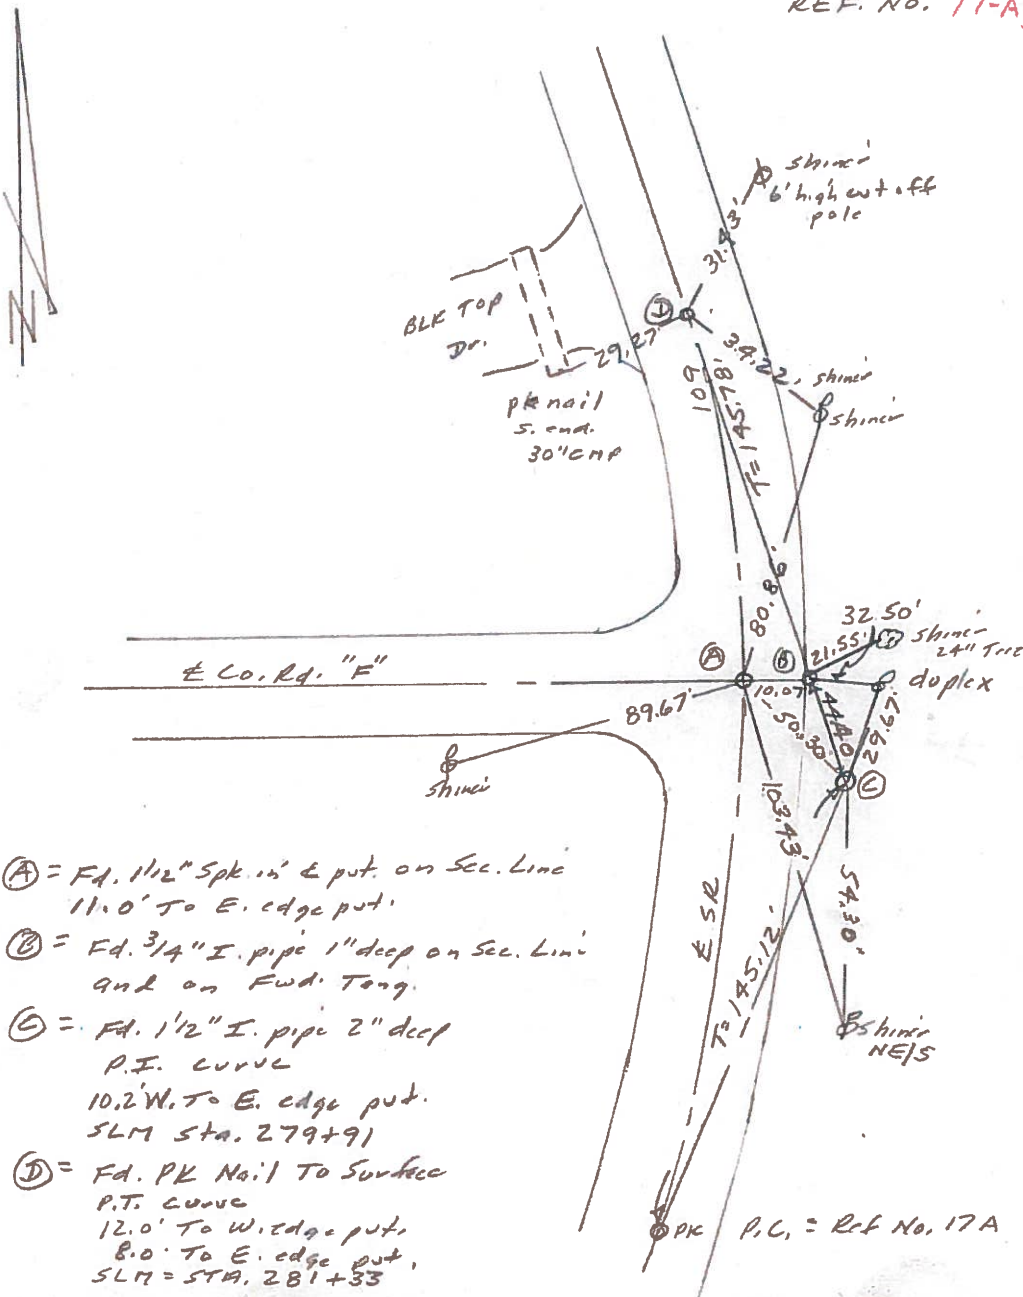 REF. NO. 17-A
N
shiner
6' high cut off
pole
31.43'
D
BLK TOP
Dr.
29.27'
34.22'
shiner
shiner
pk nail
S. end.
30" CMP
109
T=145.78'
80.86'
32.50'
21.55'
shiner
24" Tree
℄ Co. Rd. "F"
A
B
duplex
10.07
89.67'
50.30'
44.40
29.67'
C
shiner
103.43'
54.30'
℄ SR
T=145.12'
shiner
NE/S
A = Fd. 1 1/2" Spk. in ℄ pvt. on Sec. Line
11.0' To E. edge pvt.
B = Fd. 3/4" I. pipe 1" deep on Sec. Line
and on Fwd. Tang.
C = Fd. 1 1/2" I. pipe 2" deep
P.I. curve
10.2' W. To E. edge pvt.
SLM Sta. 279+91
D = Fd. PK Nail To Surface
P.T. curve
12.0' To W. edge pvt.
8.0' To E. edge pvt.
SLM = STA. 281+33
PK P.C. = Ref No. 17A